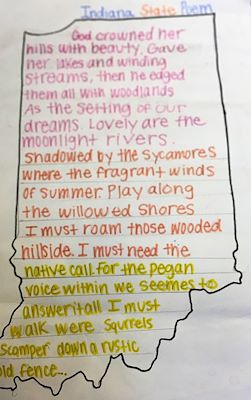 Indiana State Poem
God crowned her
hills with beauty. Gave
her lakes and winding
streams, then he edged
them all with woodlands
As the setting of our
dreams. Lovely are the
moonlight rivers.
Shadowed by the sycamores
where the fragrant winds
of summer. Play along
the willowed shores
I must roam those wooded
hillside. I must need the
native call for the pegan
voice within we seemes to
answer it all I must
walk were squrrels
scamper down a rustic
old fence...